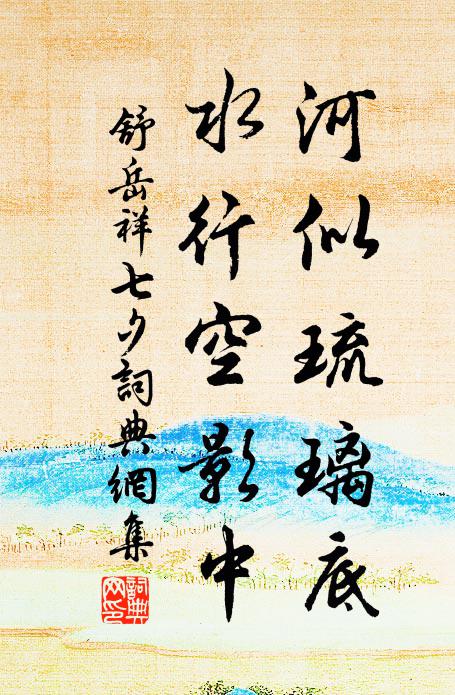 河似琉璃底
水行空影中
舒岳祥七夕詞典網集
詞典